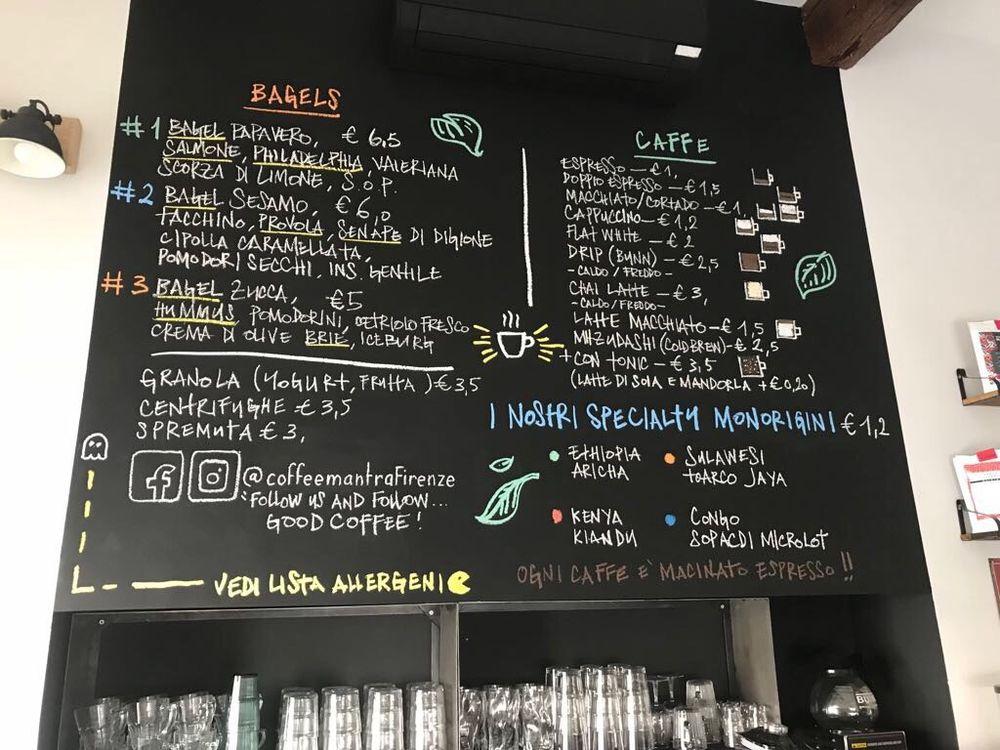 BAGELS
#1 BAGEL PAPAVERO, € 6,5
SALMONE, PHILADELPHIA, VALERIANA
SCORZA DI LIMONE, S.O.P.
#2 BAGEL SESAMO, € 6,0
TACCHINO, PROVOLA, SENAPE DI DIGIONE
CIPOLLA CARAMELLATA,
POMODORI SECCHI, INS. GENTILE
#3 BAGEL ZUCCA, €5
HUMMUS, POMODORINI, CETRIOLO FRESCO
CREMA DI OLIVE BRIE, ICEBURG
GRANOLA (YOGURT, FRUTTA) €3,5
CENTRIFUGHE € 3,5
SPREMUTA € 3,
@coffeemantrafirenze
FOLLOW US AND FOLLOW...
GOOD COFFEE!
VEDI LISTA ALLERGENI
CAFFE
ESPRESSO — €1,
DOPPIO ESPRESSO — €1,5
MACCHIATO/CORTADO — €1,
CAPPUCCINO — €1,2
FLAT WHITE — € 2
DRIP (BUNN) — € 2,5
- CALDO / FREDDO -
CHAI LATTE — € 3,
- CALDO / FREDDO -
LATTE MACCHIATO — € 1,5
MIZUDASHI (COLD BREW) - € 2,5
+ CON TONIC — € 3,5
(LATTE DI SOIA E MANDORLA + €0,20)
I NOSTRI SPECIALTY MONORIGINI € 1,2
ETHIOPIA
ARICHA
SULAWESI
TOARCO JAYA
KENYA
KIANDU
CONGO
SOPACDI MICROLOT
OGNI CAFFE E' MACINATO ESPRESSO!!